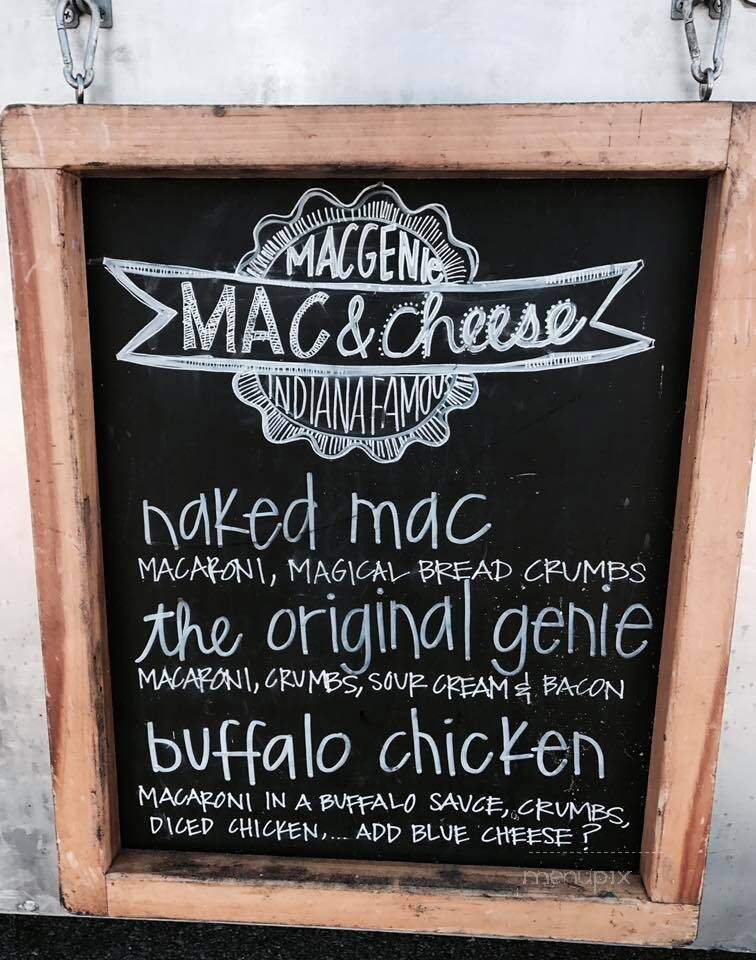 MACGENIe
MAC & cheese
INDIANA FAMOUS
naked mac
MACARONI, MAGICAL BREAD CRUMBS
the original genie
MACARONI, CRUMBS, SOUR CREAM & BACON
buffalo chicken
MACARONI IN A BUFFALO SAUCE, CRUMBS,
DICED CHICKEN,... ADD BLUE CHEESE?
menupix